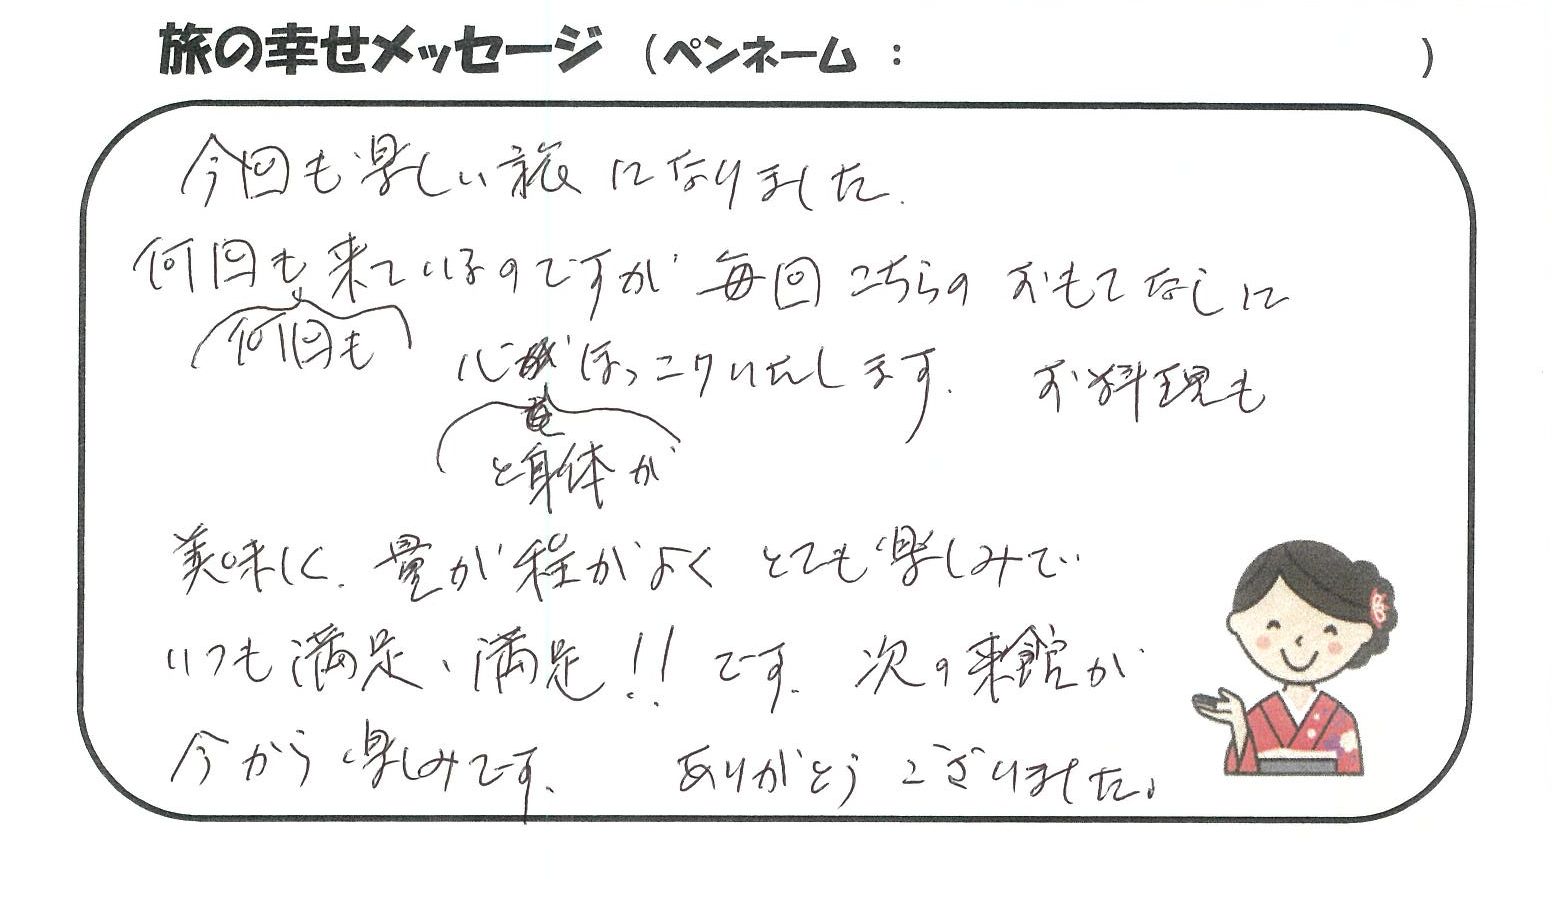 旅の幸せメッセージ (ペンネーム : )
今回も楽しい旅になりました.
何回も来ているのですが 毎回こちらの おもてなしに
何回も
心がほっこりいたします. お料理も
と身体が
美味しく. 量が程がよく とても楽しみで
いつも満足、満足!! です. 次の来館が
今から楽しみです. ありがとうございました。